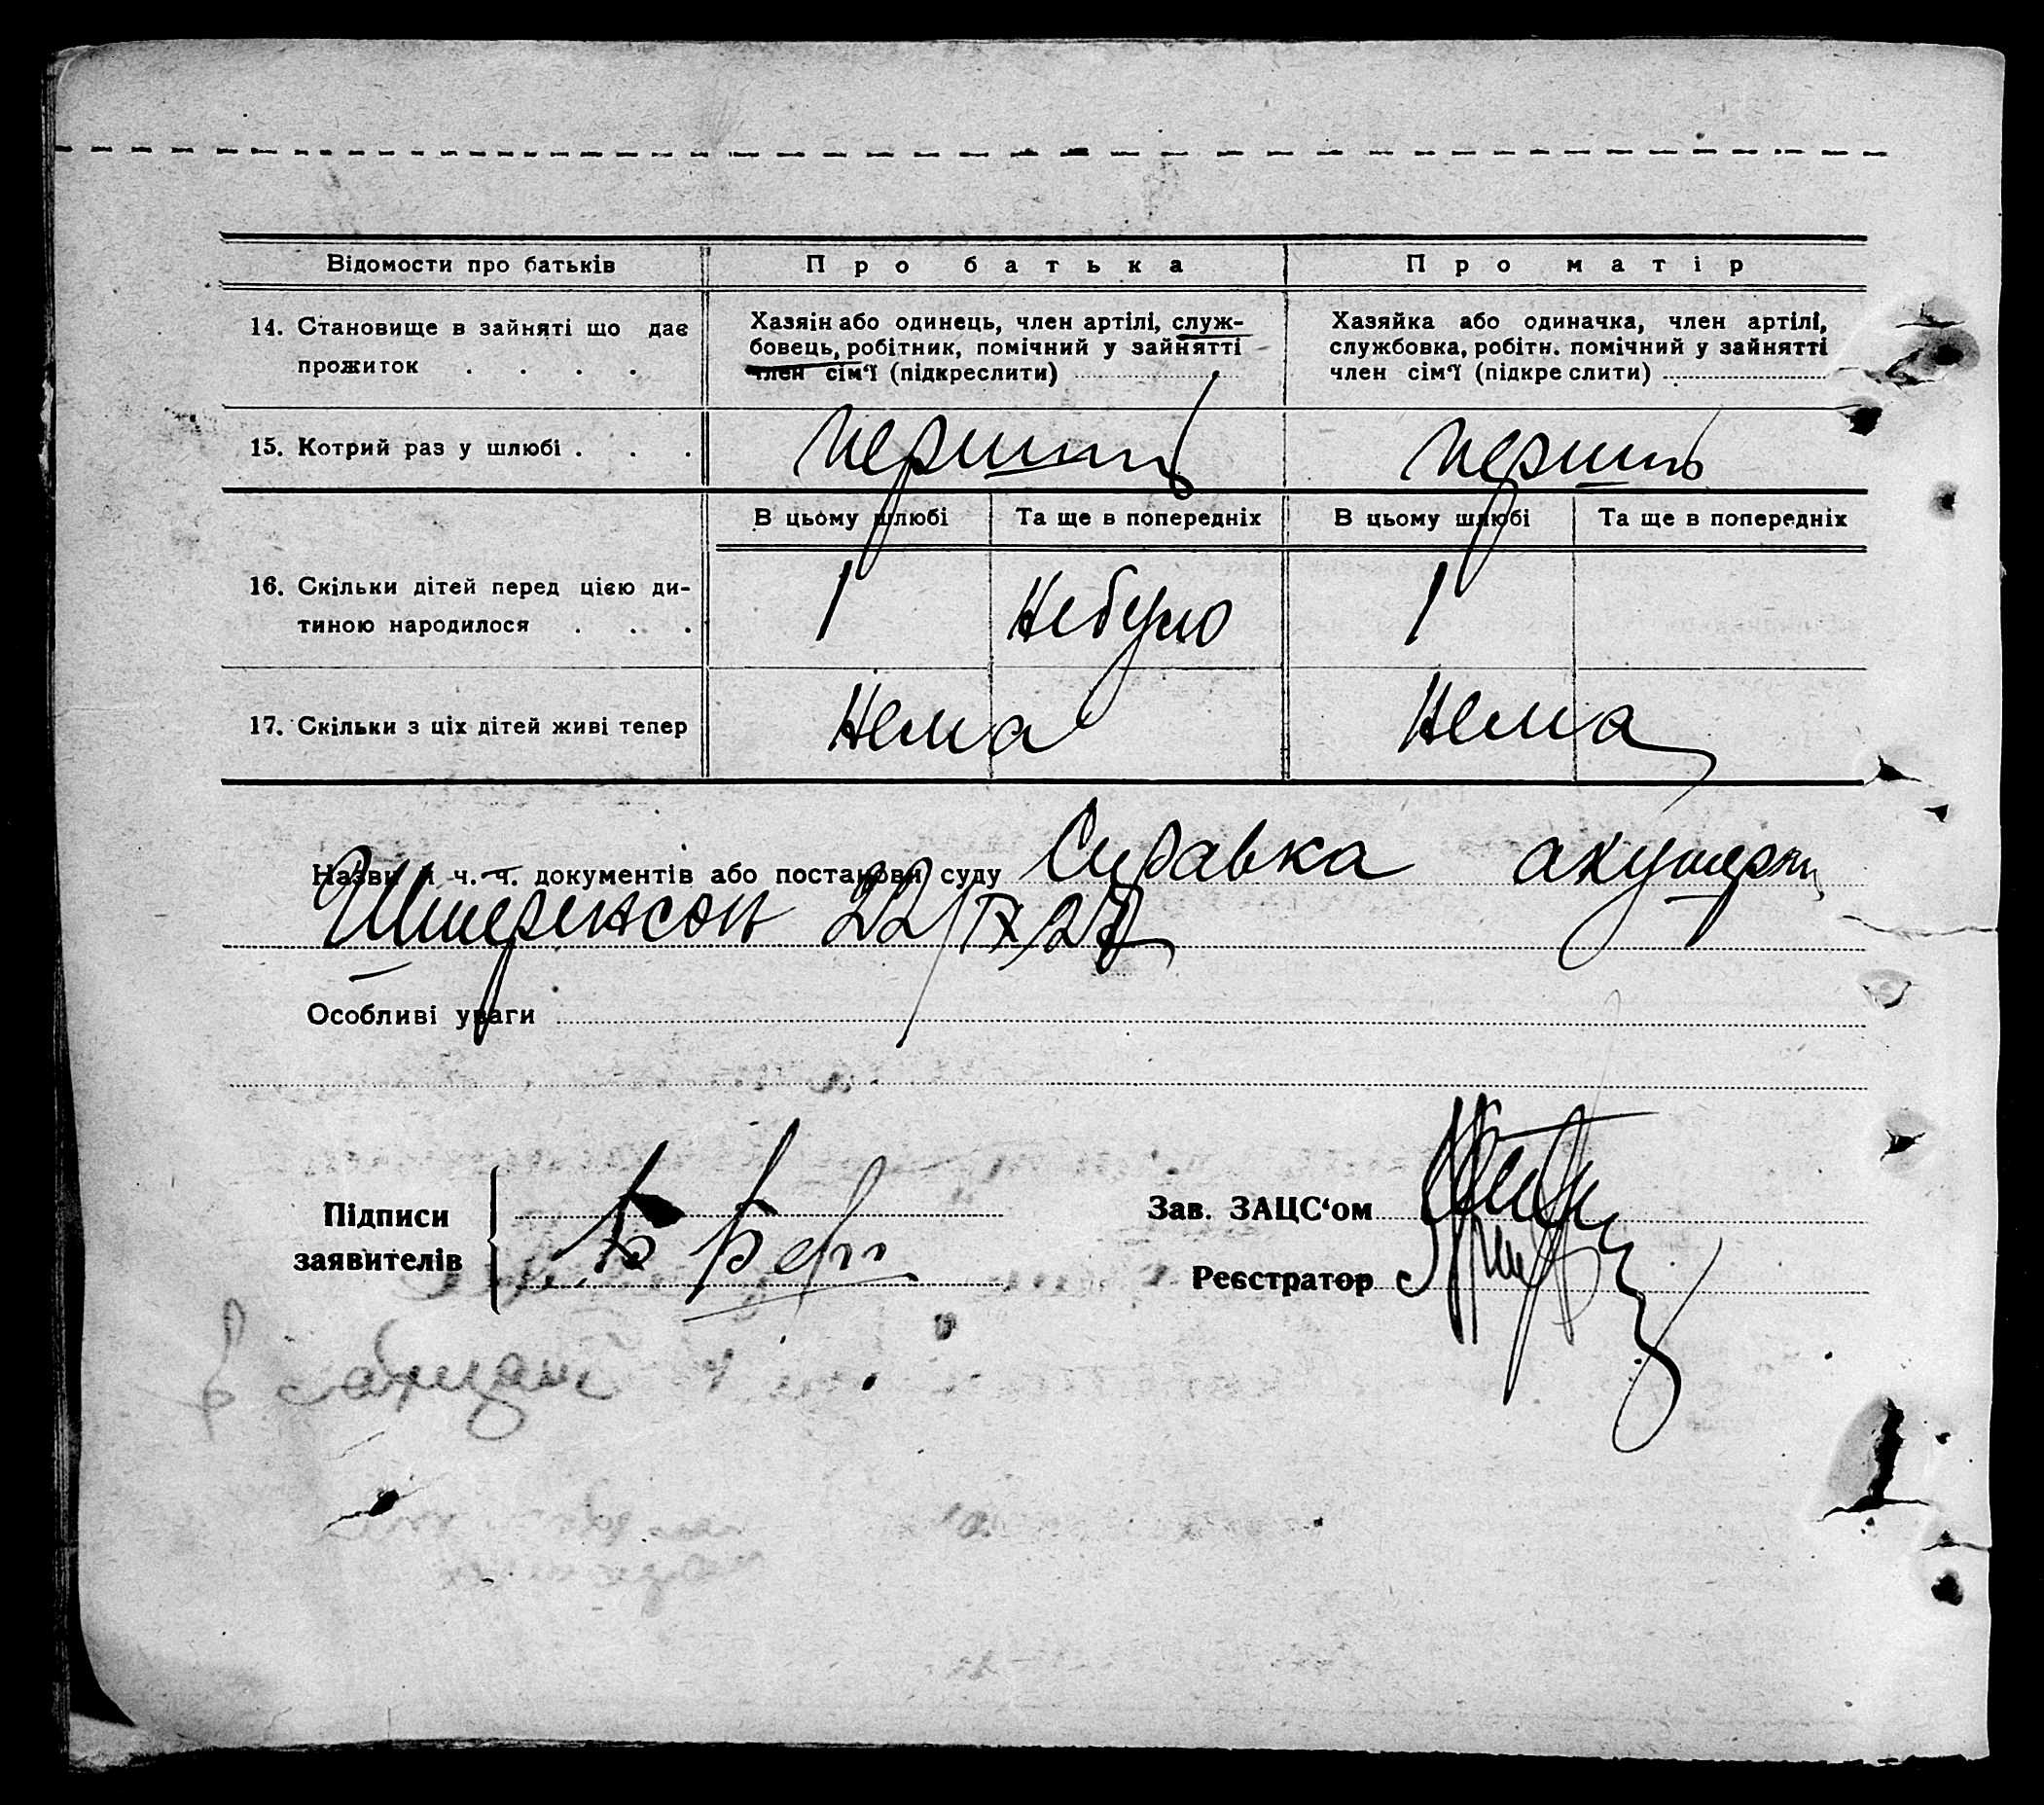 Відомости про батьків
Про батька
Про матір
14. Становище в зайняті що дає
прожиток . . . .
Хазяін або одинець, член артілі, служ-
бовець, робітник, помічний у зайнятті
член сім'ї (підкреслити)
Хазяйка або одиначка, член артілі,
службовка, робітн. помічний у зайнятті
член сім'ї (підкреслити)
15. Котрий раз у шлюбі . . .
перший
перший
В цьому шлюбі
Та ще в попередніх
В цьому шлюбі
Та ще в попередніх
16. Скільки дітей перед цією ди-
тиною народилося . . .
1
Небуло
1
17. Скільки з ціх дітей живі тепер
Нема
Нема
Назви й ч. ч. документів або постанови суду Справка акушерки
22/IX/27
Особливі уваги
Підписи
заявителів
Зав. ЗАЦС'ом
Реєстратор